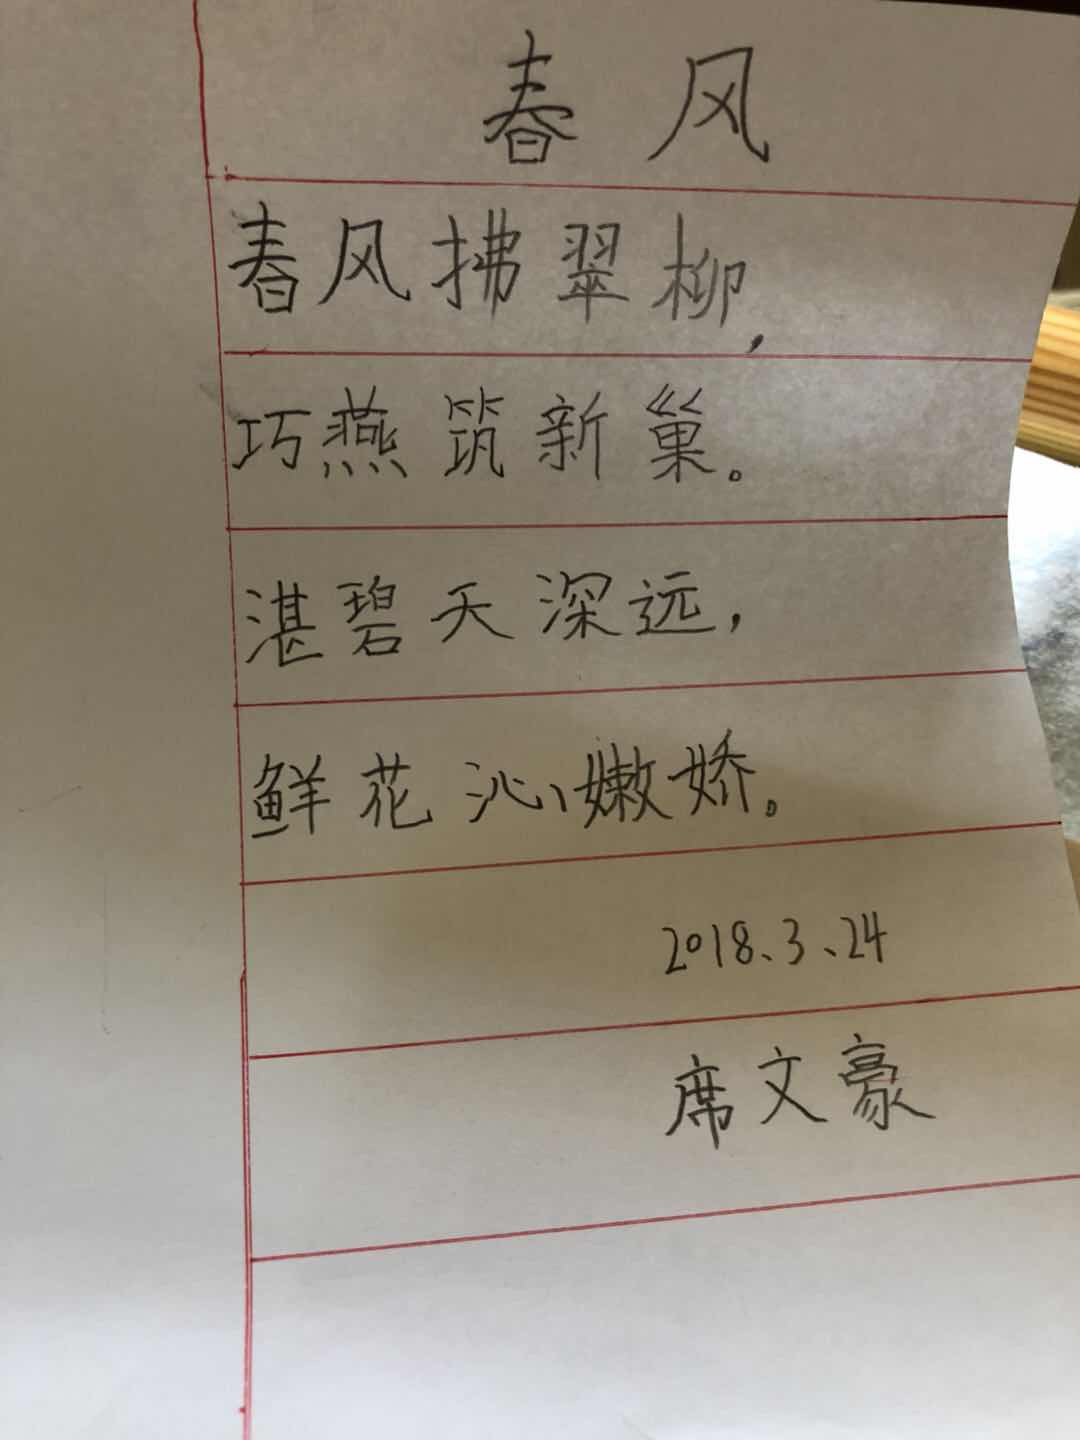 春风
春风拂翠柳,
巧燕筑新巢。
湛碧天深远,
鲜花沁嫩娇。
2018、3、24
席文豪